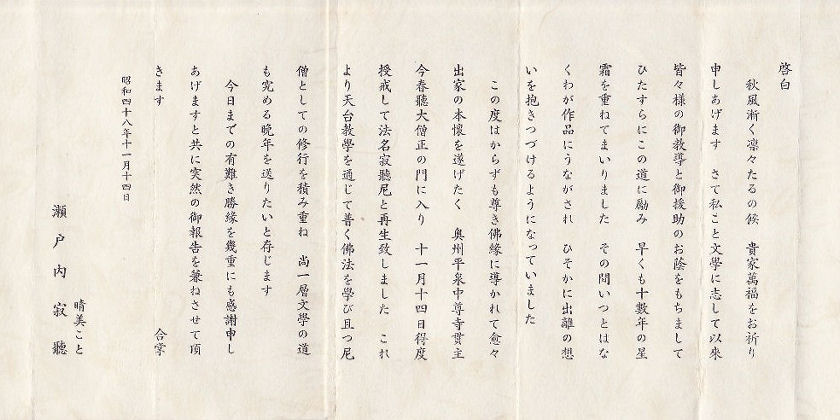 啓白
秋風漸く凛々たるの候　貴家萬福をお祈り
申しあげます　さて私こと文學に志して以來
皆々様の御教導と御援助のお蔭をもちまして
ひたすらにこの道に勵み　早くも十數年の星
霜を重ねてまいりました　その間いつとはな
くわが作品にうながされ　ひそかに出離の想
いを抱きつづけるようになっていました
この度はからずも尊き佛縁に導かれて愈々
出家の本懐を遂げたく　奥州平泉中尊寺貫主
今春聽大僧正の門に入り　十一月十四日得度
授戒して法名寂聽尼と再生致しました　これ
より天台教學を通じて普く佛法を學び且つ尼
僧としての修行を積み重ね　尚一層文學の道
も究める晩年を送りたいと存じます
今日までの有難き勝縁を幾重にも感謝申し
あげますと共に突然の御報告を兼ねさせて頂
きます　合掌
昭和四十八年十一月十四日
晴美こと
瀬戸内寂聽